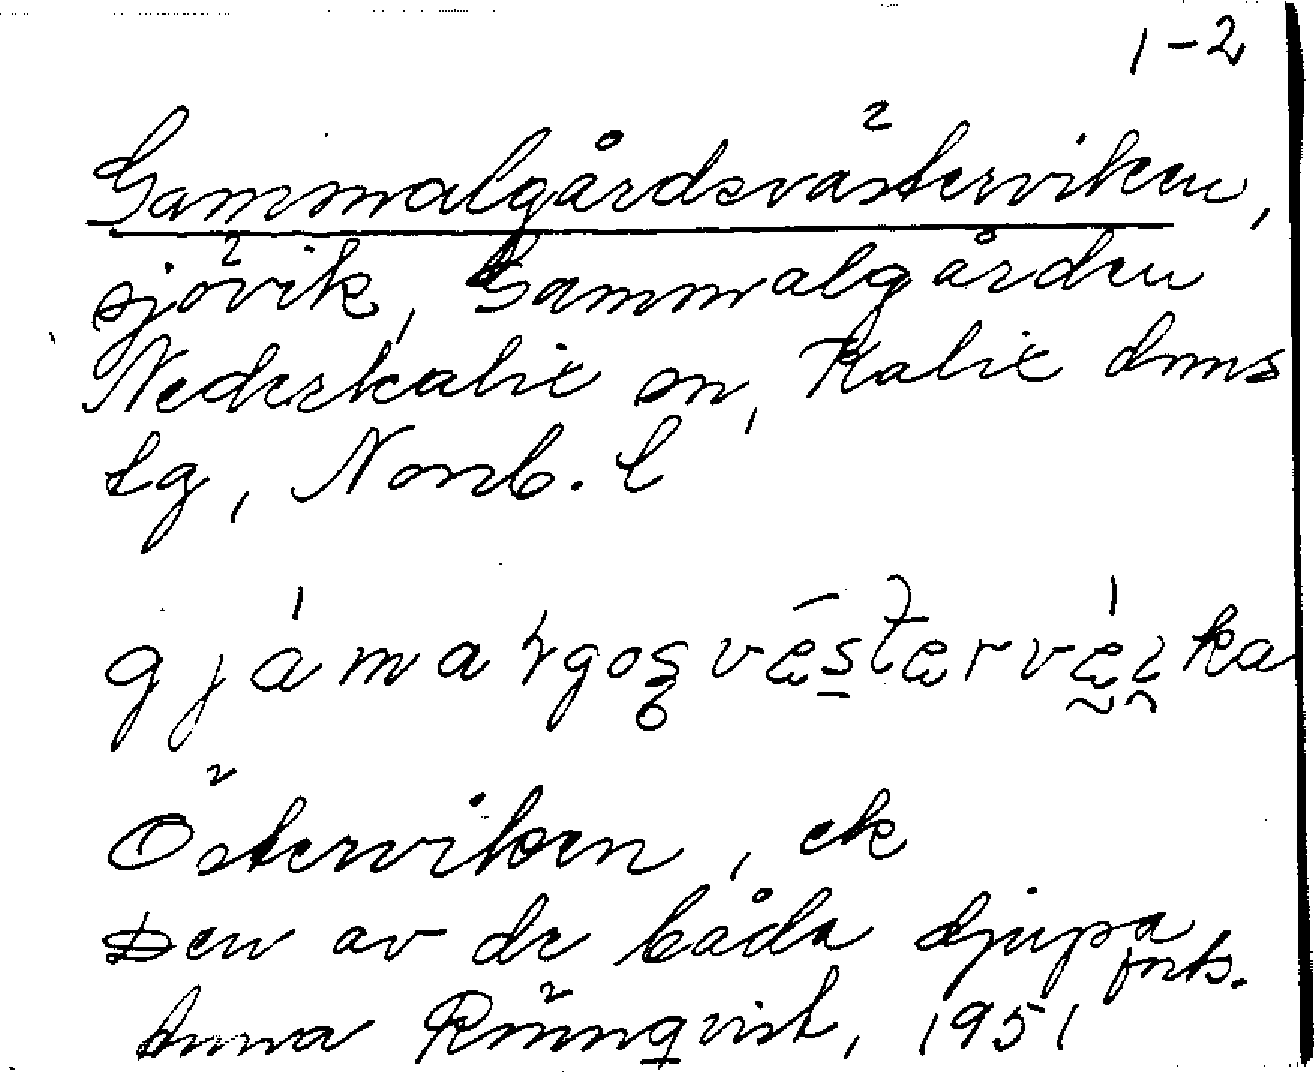 1-2
Gammalgårdsvästerviken,
sjövik, Gammalgården
Nederkalix sn, Kalix dms
tg, Norrb. l
Österviken, ek
Den av de båda djupa
forts.
Anna Rönnqvist, 1951